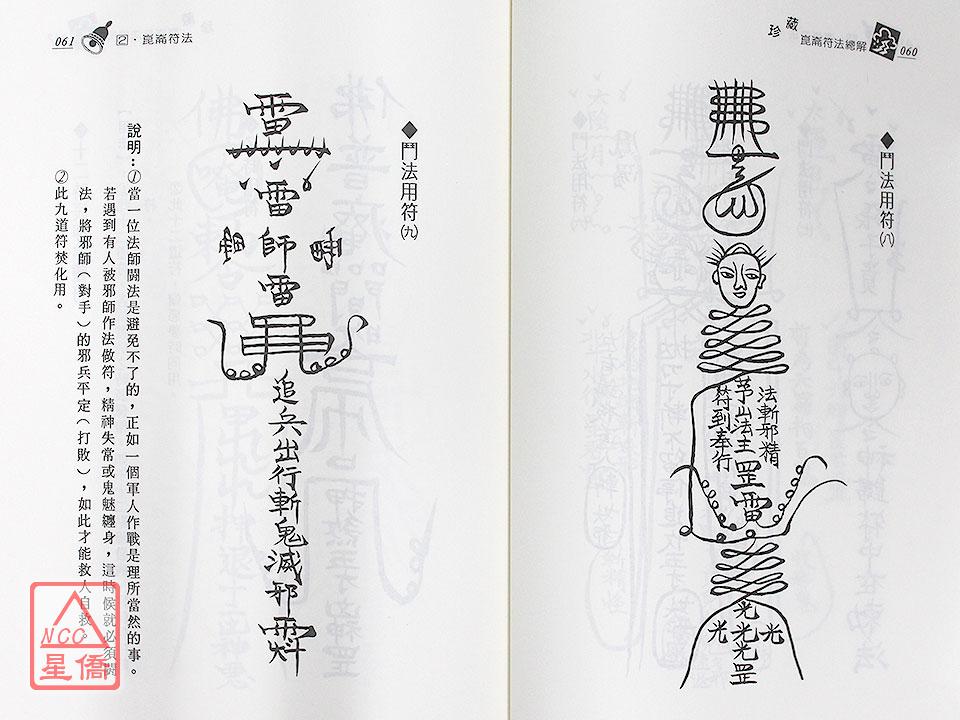 珍藏
崑崙符法總解
060
◆鬥法用符(八)
法斬邪精
茅山法主
符到奉行
罡
雷
光
光 光 光
光
罡
061
②·崑崙符法
◆鬥法用符(九)
雷
雷
師
雷
追兵出行斬鬼滅邪
說明：①當一位法師鬪法是避免不了的，正如一個軍人作戰是理所當然的事。
若遇到有人被邪師作法做符，精神失常或鬼魅纏身，這時候就必須鬪
法，將邪師(對手)的邪兵平定(打敗)，如此才能救人自救。
②此九道符焚化用。
NCC
星僑